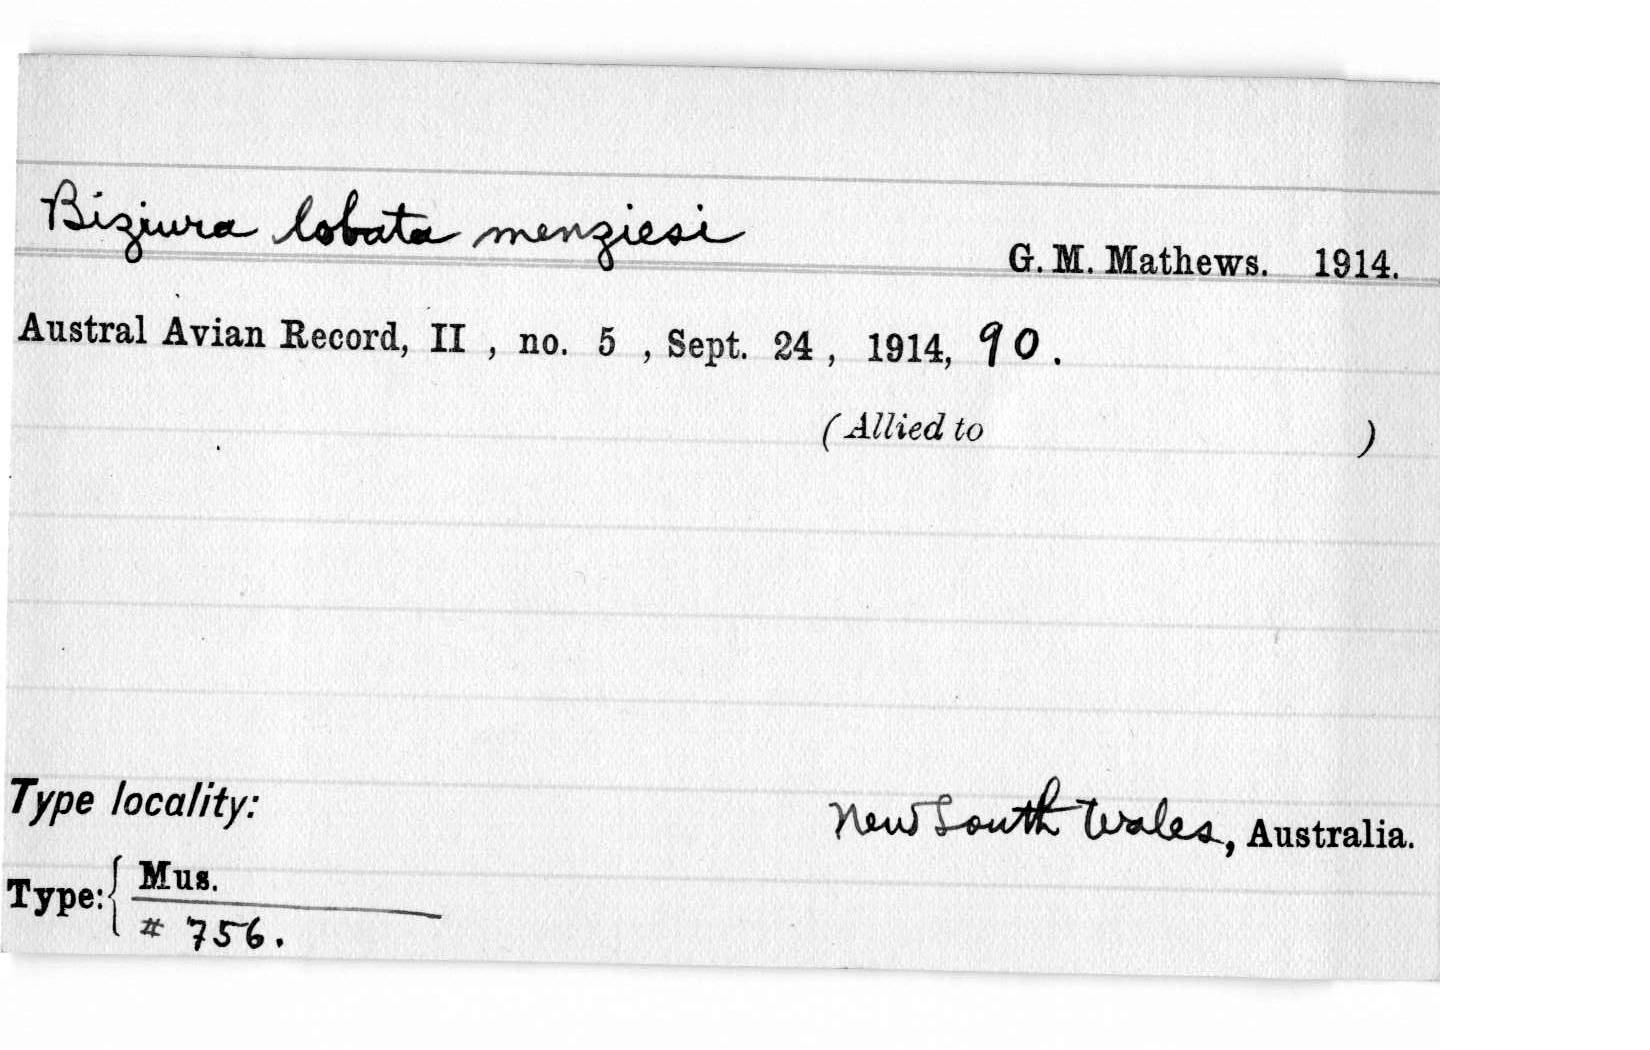 Biziura lobata menziesi
G. M. Mathews. 1914.
Austral Avian Record, II , no. 5 , Sept. 24 , 1914, 90.
(Allied to )
Type locality:
New South Wales, Australia.
Type: { Mus.
# 756.